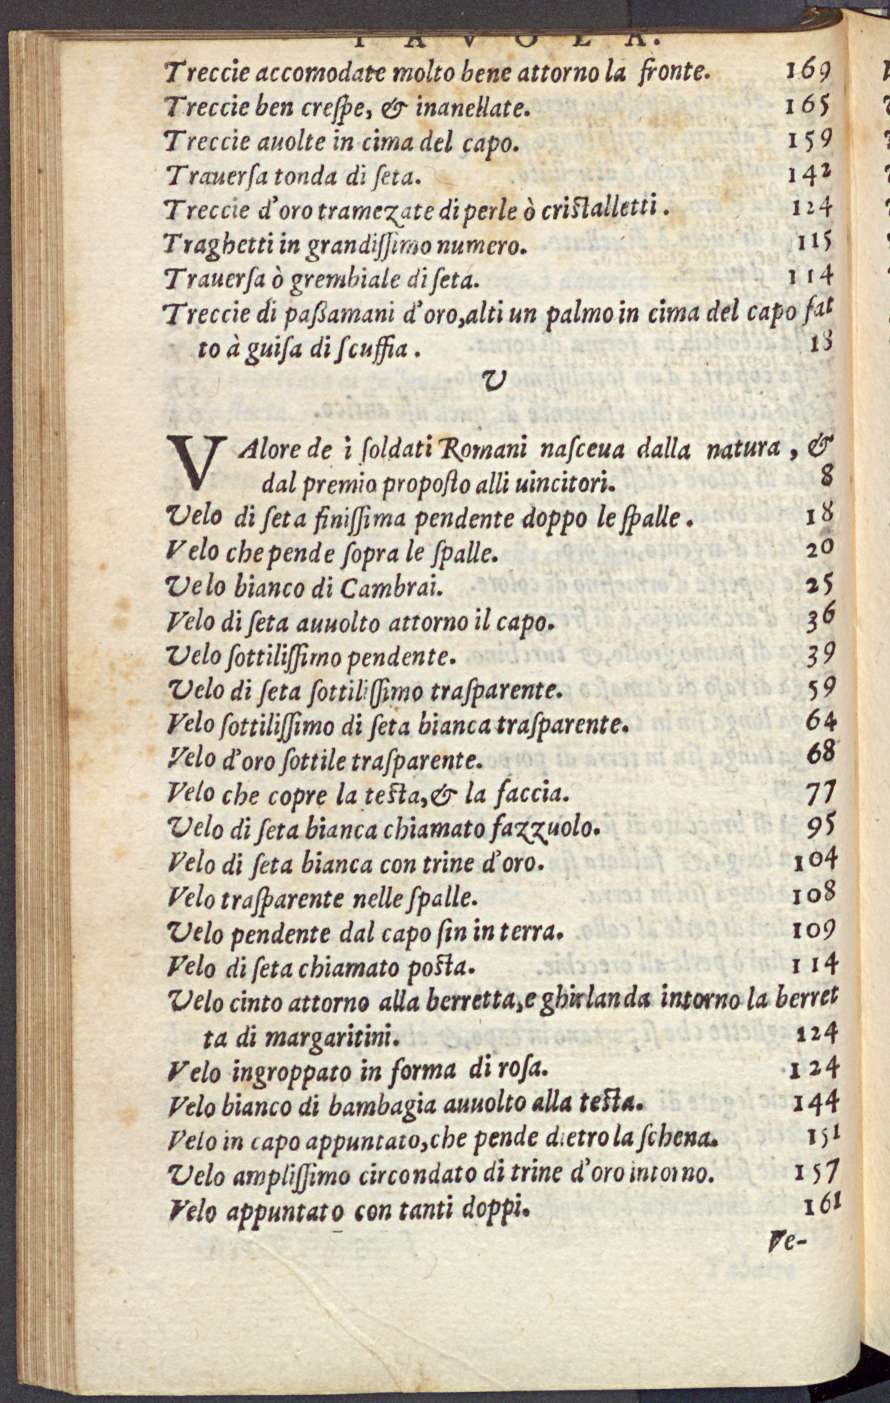 TAVOLA.
Treccie accomodate molto bene attorno la fronte. 169
Treccie ben creſpe, & inanellate. 165
Treccie auolte in cima del capo. 159
Trauerſa tonda di ſeta. 142
Treccie d'oro tramezate di perle ò criſtalletti. 124
Traghetti in grandiſſimo numero. 115
Trauerſa ò grembiale di ſeta. 114
Treccie di paßamani d'oro, alti un palmo in cima del capo fat
to à guiſa di ſcuffia. 18
V
VAlore de i ſoldati Romani naſceua dalla natura, &
dal premio propoſto alli uincitori. 8
Velo di ſeta finiſſima pendente doppo le ſpalle. 18
Velo che pende ſopra le ſpalle. 20
Velo bianco di Cambrai. 25
Velo di ſeta auuolto attorno il capo. 36
Velo ſottiliſſimo pendente. 39
Velo di ſeta ſottiliſſimo traſparente. 59
Velo ſottiliſſimo di ſeta bianca traſparente. 64
Velo d'oro ſottile traſparente. 68
Velo che copre la teſta, & la faccia. 77
Velo di ſeta bianca chiamato fazzuolo. 95
Velo di ſeta bianca con trine d'oro. 104
Velo traſparente nelle ſpalle. 108
Velo pendente dal capo ſin in terra. 109
Velo di ſeta chiamato poſta. 114
Velo cinto attorno alla berretta, e ghirlanda intorno la berret
ta di margaritini. 124
Velo ingroppato in forma di roſa. 124
Velo bianco di bambagia auuolto alla teſta. 144
Velo in capo appuntato, che pende dietro la ſchena. 151
Velo ampliſſimo circondato di trine d'oro intorno. 157
Velo appuntato con tanti doppi. 161
Ve-